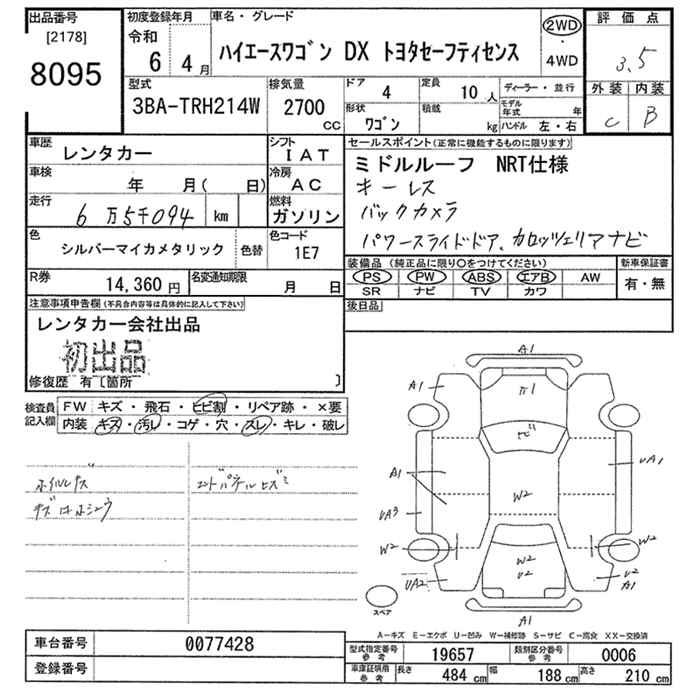 出品番号
[2178]
8095
初度登録年月
令和
6 4 月
車名・グレード
ハイエースワゴン DX トヨタセーフティセンス
2WD
4WD
評価点
3.5
外装 内装
C B
型式
3BA-TRH214W
排気量
2700 CC
ドア 4
形状 ワゴン
定員 10 人
積載 kg
ディーラー・並行
モデル年式 年
ハンドル 左・右
車歴
レンタカー
シフト
I AT
車検 年 月( 日)
冷房
AC
走行
6 万 5千094 km
燃料
ガソリン
色
シルバーマイカメタリック
色替
色コード
1E7
R券 14,360 円
名変通知期限 月 日
セールスポイント(正常に機能するものに限ります)
ミドルルーフ NRT仕様
キーレス
バックカメラ
パワースライドドア、カロッツェリアナビ
装備品(純正品に限り〇をつけてください)
PS PW ABS エアB AW
SR ナビ TV カワ
新車保証書
有・無
後日品
注意事項申告欄(不具合内容等は具体的に記入して下さい)
レンタカー会社出品
初出品
修復歴 有〔箇所 〕
検査員記入欄
FW キズ・飛石・ヒビ割・リペア跡・×要
内装 キズ・汚レ・コゲ・穴・スレ・キレ・破レ
ホイルキズ
キズ凹ホシュウ
エンドパネルヒズミ
A1
A1
π1
A1
ナビ
UA1
A1
UA3
W2
W2
W2
W2
U2
UA2
U2
A1
A1
スペア
A−キズ E−エクボ U−凹み W−補修跡 S−サビ C−腐食 XX−交換済
車台番号 0077428
登録番号
型式指定番号 参考 19657
類別区分番号 参考 0006
車庫証明用 参考 長さ 484 cm 幅 188 cm 高さ 210 cm